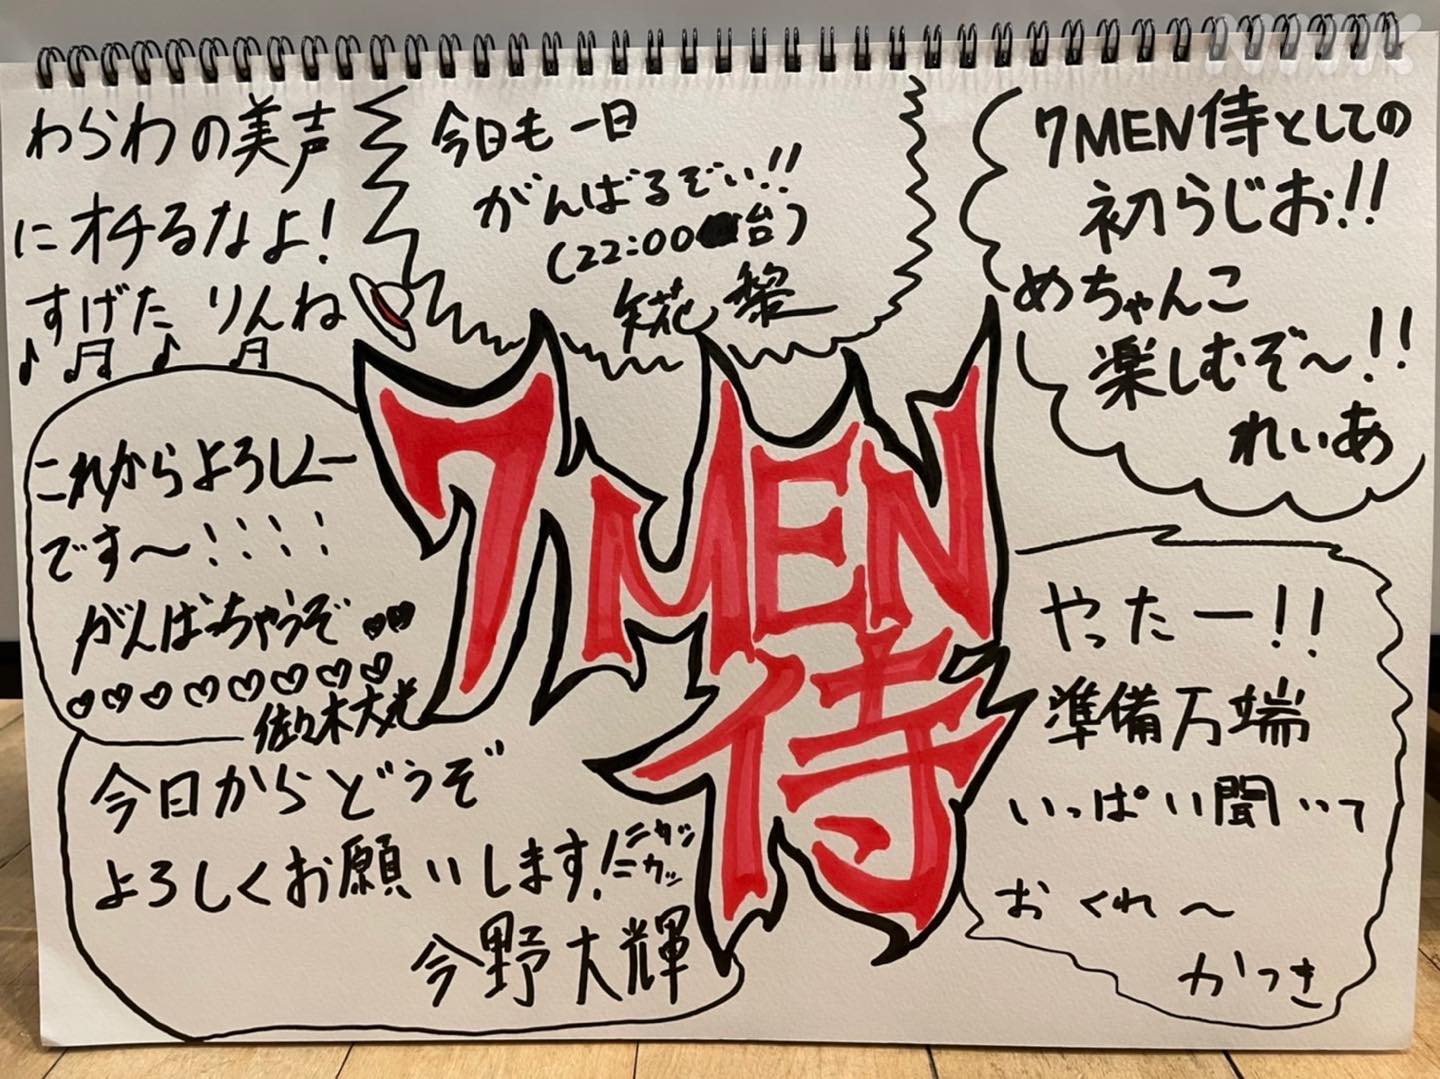 NHK
わらわの美声
にオチるなよ!
すげた りんね
今日も一日
がんばるぞい!!
(22:00台)
矢花 黎
7MEN侍としての
初らじお!!
めちゃんこ
楽しむぞ〜!!
れいあ
これからよろしくー
です〜!!!!
がんばっちゃうぞ
佐々木大光
7MEN
侍
やったー!!
準備万端
いっぱい聞いて
おくれ〜
かつき
今日からどうぞ
よろしくお願いします!ニカッ
ニカッ
今野大輝